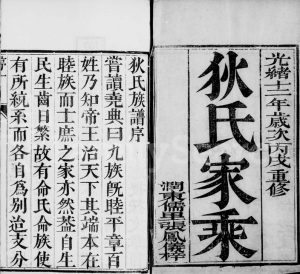 光緒十二年歲次丙戌重修
狄氏家乘
潤東儒里張鳳梓
狄氏族譜序
嘗讀堯典曰九族既睦平章百
姓乃知帝王治天下其端本在
睦族而士庶之家亦然蓋自生
民生齒日繁故有命氏命族使
有所統系而各自為別迨支分